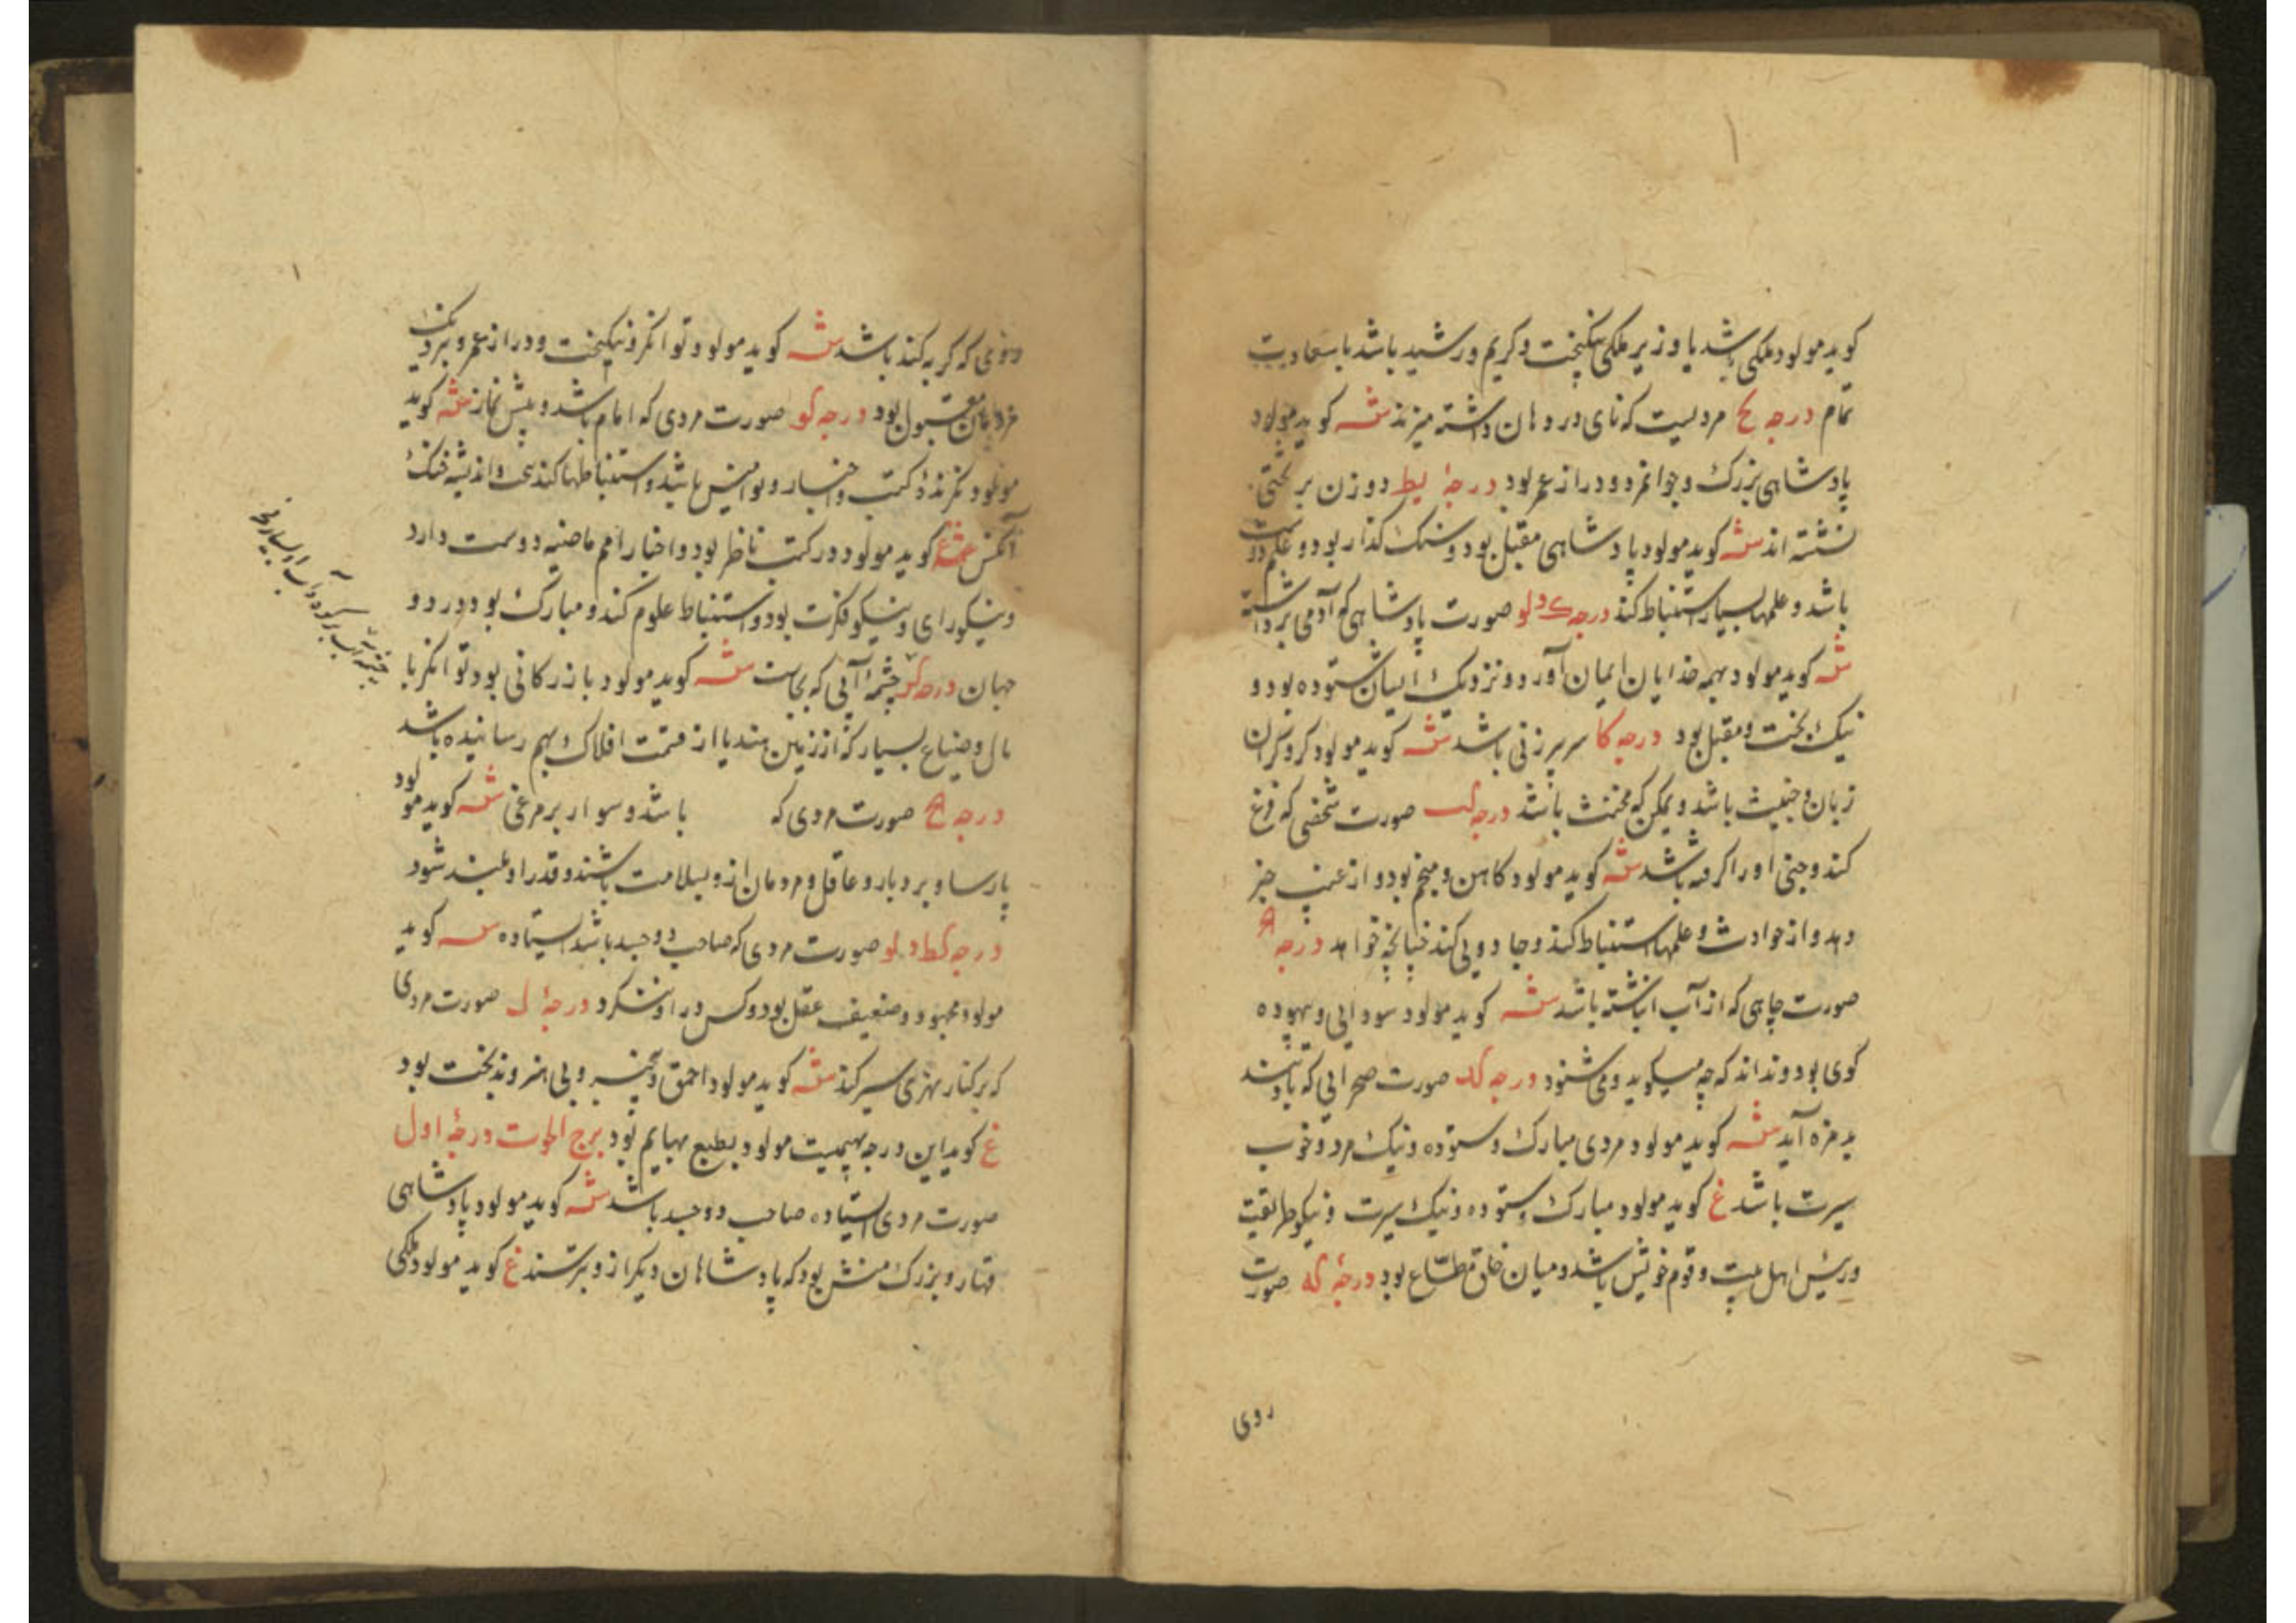 کوید مولود ملکی باشد یا وزیر ملکی نیکبخت و کریم و رشید باشد با سعادت
تمام درجه یح مردیست که نای در دهان داشته میزند شه کوید مولود
پادشاهی بزرک و جوانمرد و دراز عمر بود درجهٔ یط دو زن بر تختی
نشسته اند شه کوید مولود پادشاهی مقبل بود و سنک کذار بود و علم دوست
باشد و علمها بسیار استنباط کند درجه ک دلو صورت پادشاهی که آدمی برداشته
شه کوید مولود بهمه خدایان ایمان آورد و نزدیک ایشان ستوده بود و
نیک بخت و مقبل بود درجه کا سر پر زنی باشد شه کوید مولود کر و کران
زبان و خبیث باشد و یمکن که مخنث باشد درجه کب صورت شخصی که
کند و جنی او را کرفته باشد شه کوید مولود کاهن و منجم بود و از غیب خبر
دهد و از حوادث و علمها استنباط کند و جادویی کند چنانچه خواهد درجه
صورت چاهی که از آب انباشته باشد شه کوید مولود سودایی و بیهوده
کوی بود و نداند که چه میکوید و می شنود درجه کد صورت صحرایی که باد تند
بد مزه آید شه کوید مولود مردی مبارک و ستوده و نیک مرد و خوب
سیرت باشد غ کوید مولود مبارک و ستوده و نیک سیرت و نیکو طریقت
و رئیس اهل بیت و قوم خویش باشد و میان خلق مطاع بود درجهٔ که صورت
روی
که کریه کند باشد شه کوید مولود توانکر و نیکبخت و دراز عمر و بنزدیک
مردمان مقبول بود درجه کو صورت مردی که امام باشد و پیش نماز شه کوید
مولود نکرندهٔ کتب و اخبار و نوامیس باشد و استنباطها کند و اندیشه
آنکس غ کوید مولود در کتب ناظر بود و اخبار امم ماضیه دوست دارد
و نیکو رای و نیکو فکرت بود و استنباط علوم کند و مبارک بود در دو
جهان درجه کز چشمهٔ آبی که شه کوید مولود بازرکانی بود توانکر با
مال و ضیاع بسیار که از زمین هند یا از قسمت افلاک بهم رسانیده باشد
درجه کح صورت مردی که باشد و سوار بر مرغی شه کوید مولود
پارسا و بردبار و عاقل و مردمان ازو بسلامت باشند و قدر او بلند شود
درجه کط دلو صورت مردی که صاحب دو جسد باشد ایستاده شه کوید
مولود و ضعیف عقل بود و کس در او ننکرد درجهٔ ل صورت مردی
که بر کنار نهری سیر کند شه کوید مولود احمق و بی هنر و بدبخت بود
غ کوید این درجه بهیمیت مولود بطبع بهایم بود برج الحوت درجهٔ اول
صورت مردی ایستاده صاحب دو جسد باشد شه کوید مولود پادشاهی
قهار و بزرک منش بود که پادشاهان دیکر ازو بترسند غ کوید مولود ملکی